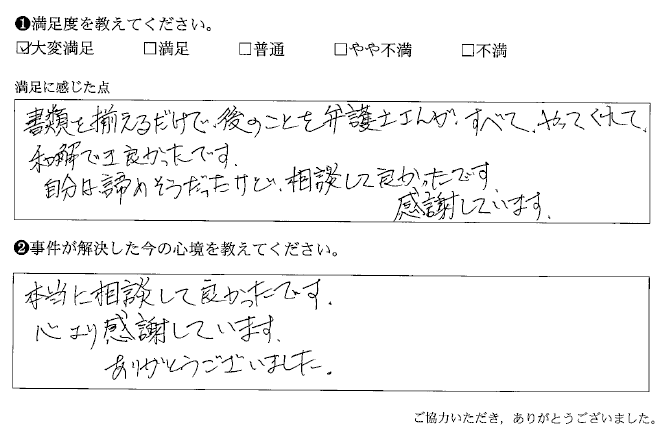 ❶満足度を教えてください。
☑大変満足 □満足 □普通 □やや不満 □不満
満足に感じた点
書類を揃えるだけで、後のことを弁護士さんが、すべて、やってくれて、
和解でき良かったです。
自分は諦めそうだったけど、相談して良かったです。
感謝しています。
❷事件が解決した今の心境を教えてください。
本当に相談して良かったです。
心より感謝しています。
ありがとうございました。
ご協力いただき，ありがとうございました。